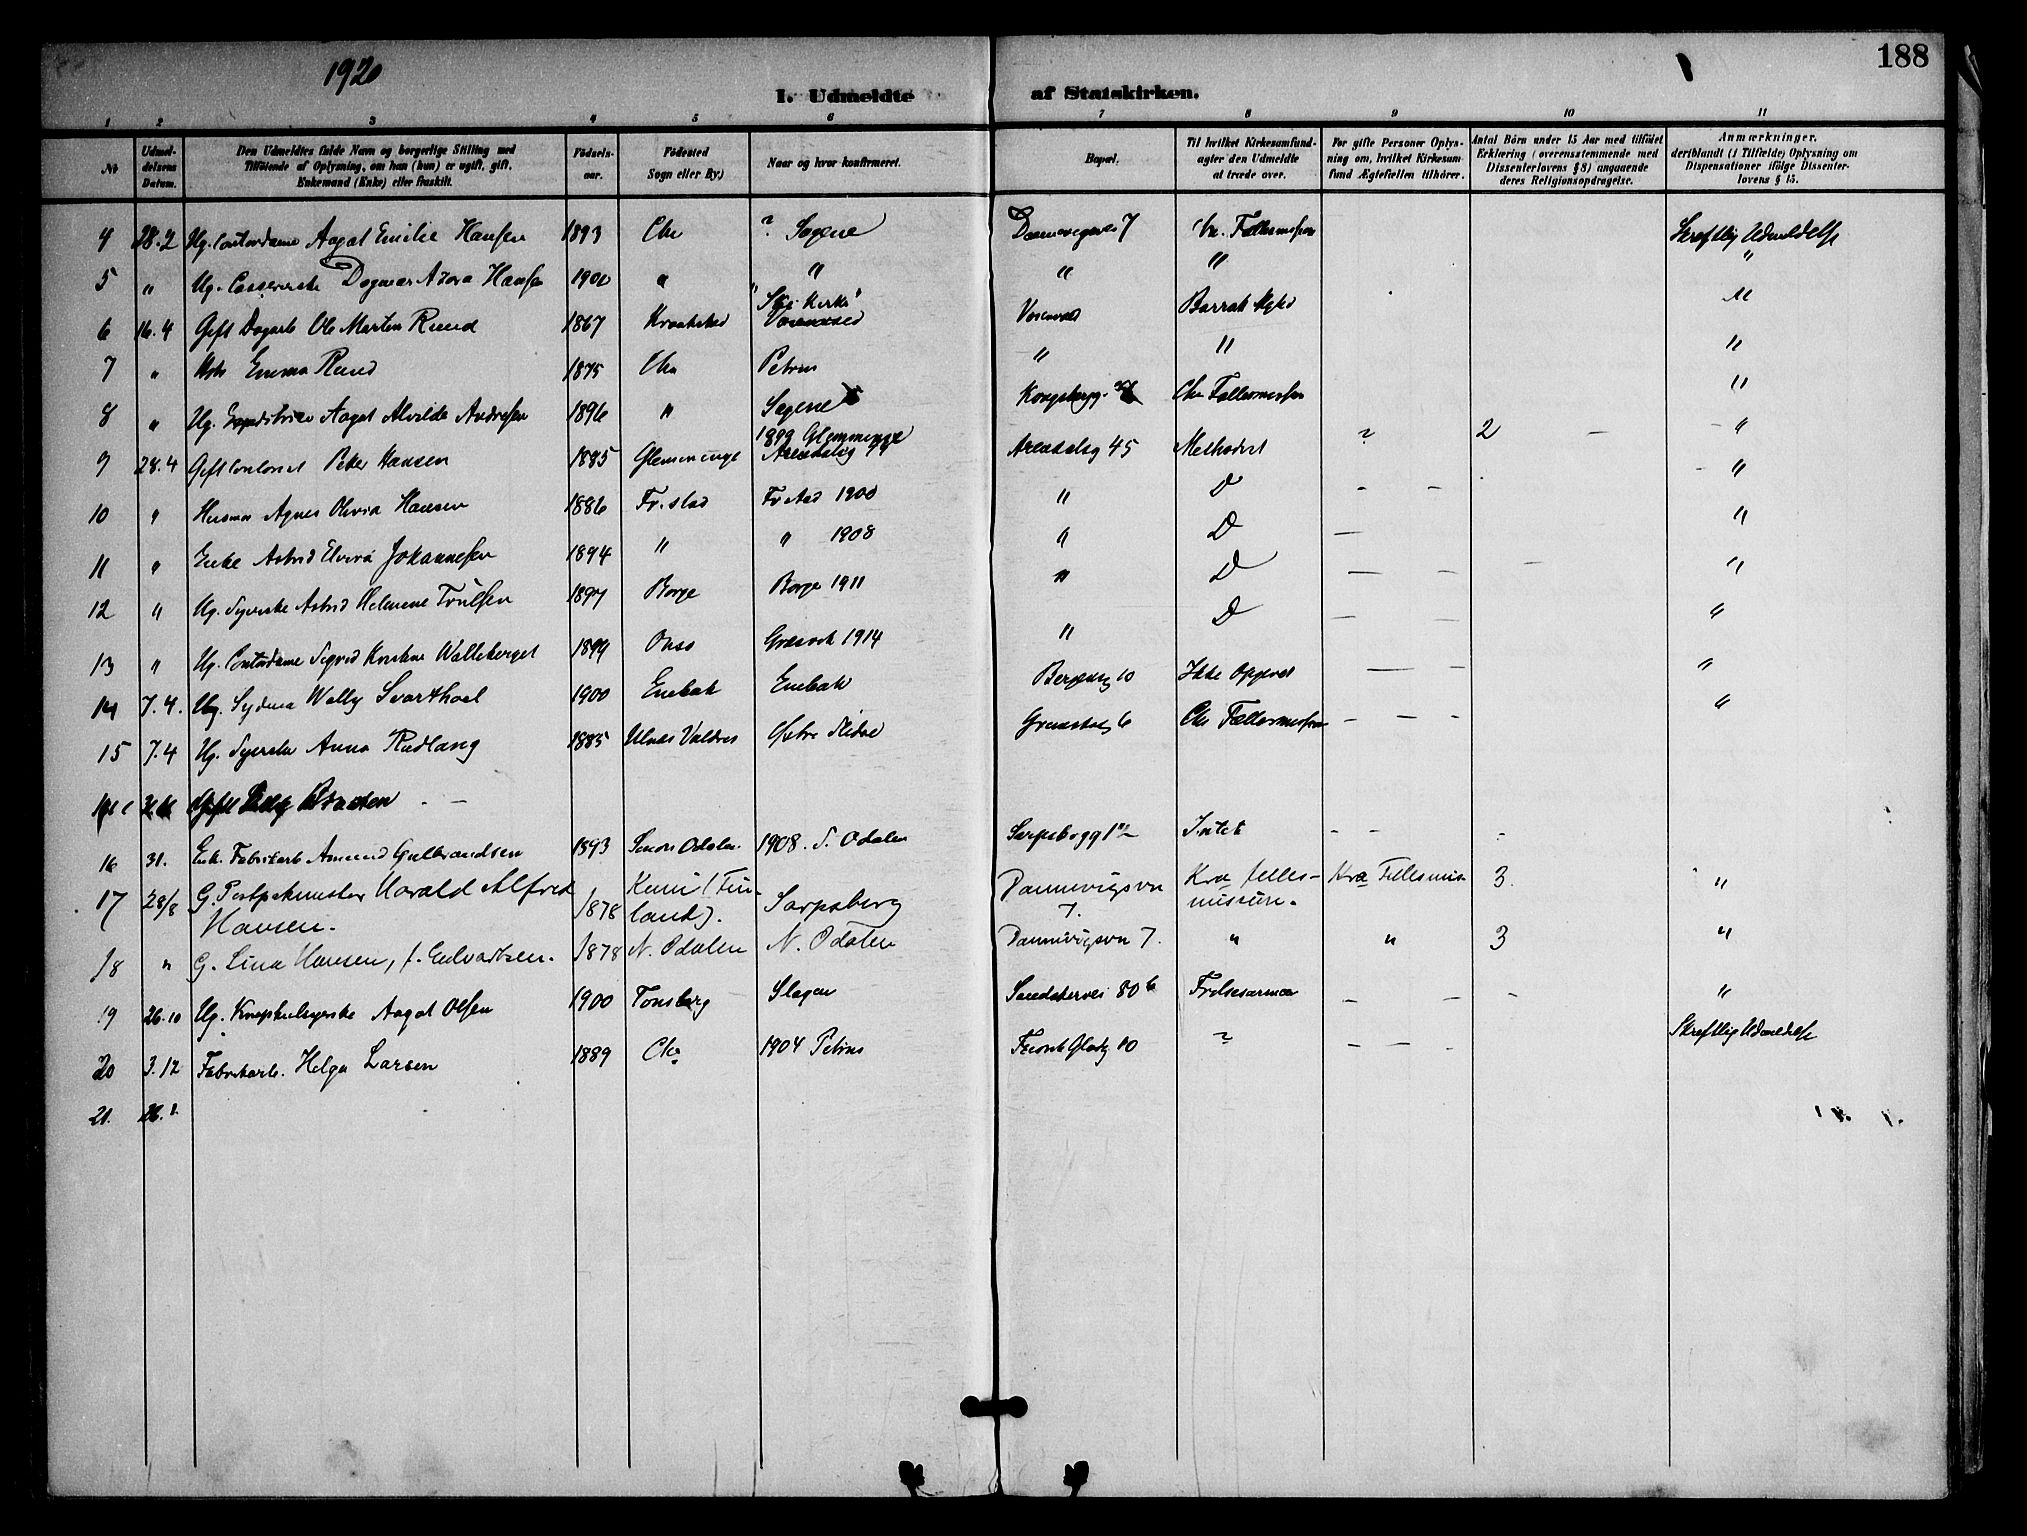 188
1920
I. Udmeldte af Statskirken.
1 2 3 4 5 6 7 8 9 10 11
№
Udmeldelsens Datum.
Den Udmeldtes fulde Navn og borgerlige Stilling med Tilföiende af Oplysning, om han (hun) er ugift, gift, Enkemand (Enke) eller fraskilt.
Födselsaar.
Födested Sogn eller By.)
Naar og hvor konfirmeret.
Bopæl.
Til hvilket Kirkesamfund agter den Udmeldte at træde over.
For gifte Personer Oplysning om, hvilket Kirkesamfund Ægtefællen tilhörer.
Antal Börn under 15 Aar med tilföiet Erklæring (overensstemmende med Dissenterlovens § 8) angaaende deres Religionsopdragelse.
Anmærkninger. deriblandt (i Tilfælde) Oplysning om Dispensationer ifölge Dissenterlovens § 15.
4 28.2 Ug. Contordame Aagot Emilie Hansen 1893 Chr ? Sagene Dannevigsvei 7 Chr. Fællesmission Skriftlig Udmeldelse
5 " Ug. Casererske Dagmar Azora Hansen 1902 " " " " "
6 16.4 Gift Dagarb Ole Martin Ruud 1867 Kraakstad "Ski Kirke" Barratt Mghd "
7 " Hstr Emma Ruud 1875 Chr Petrus " " "
8 " Ug. Aagot Alvilde Andresen 1896 " Sagene Chr Fællesmission "
9 28.4 Gift Contorist Peter Hansen 1885 Glemminge 1899 Glemminge Arendalsg 45 Methodist ? 2 — "
10 " Husmor Agnes Olivia Hansen 1886 Fr.stad Fr stad 1900 " D — — "
11 " Enke Astrid Elvira Johannesen 1894 " " 1908 " D — "
12 " Ug. Syerske Astrid Helmine Trulsen 1897 Borge Borge 1911 " D — — — "
13 " Ug. Contordame Sigrid Kristine Walleberget 1899 Onsø Greaker 1914 " D — — "
14 7.4. Ug. Sydame Wally Svarthoel 1900 Enebak Enebak Bergensg 10 Ikke Opgivet — — "
15 7.4 Ug. Syerske Anna Rudlang 1885 Ulnes Valdres Østre Slidre Grimstadg 6 Chr Fællesmission — — — "
16 31. Enk. Fabrikarb Amund Gulbrandsen 1893 Søndre Odalen. 1908. S. Odalen Sarpsborgg 1 Intet — — -
17 28/8 G. Postpakmester Harald Alfred Hansen. 1878 Kemi (Finland). Sarpsborg Dannevigsvn 7. Kra fellesmission. Kra Fellesmis. 3. "
18 " G. Lina Hansen, f. Enlvartsen. 1878 N. Odalen N. Odalen Dannevigsvn 7. " " 3 "
19 26.10 Ug. Knaphulsyerske Aagot Olsen 1900 Tønsberg Slagen Sandakervei 80 b Frelsesarmeen — — — "
20 3.12 Fabrikarb. Helga Larsen 1889 Chr. 1904 Petrus 10 ? — — - Skriftlig Udmeldelse
21. 28.1